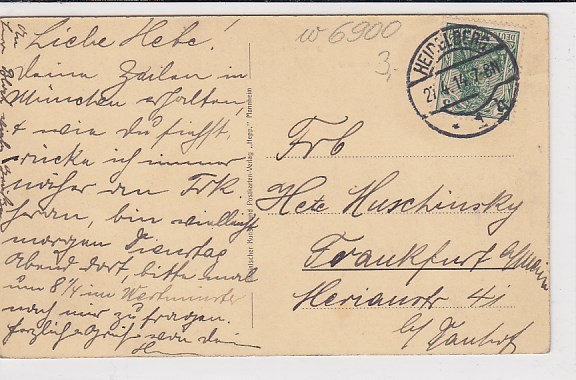 w 6900
3,-
Liebe Hete!
deine Zeilen in
München erhalten,
& wie du siehst,
rücke ich immer
näher an Frk.
heran, bin vielleicht
morgen Dienstag
Abend dort, bitte mal
um 8½ im Westminster
nach mir zu fragen.
herzliche Grüsse von dein
HEIDELBERG
27.4.14 7-8N
Frl
Hete Huschinsky
Frankfurt a/Main
Merianstr 41
Kunst- und Postkarten-Verlag „Hepp," Mannheim